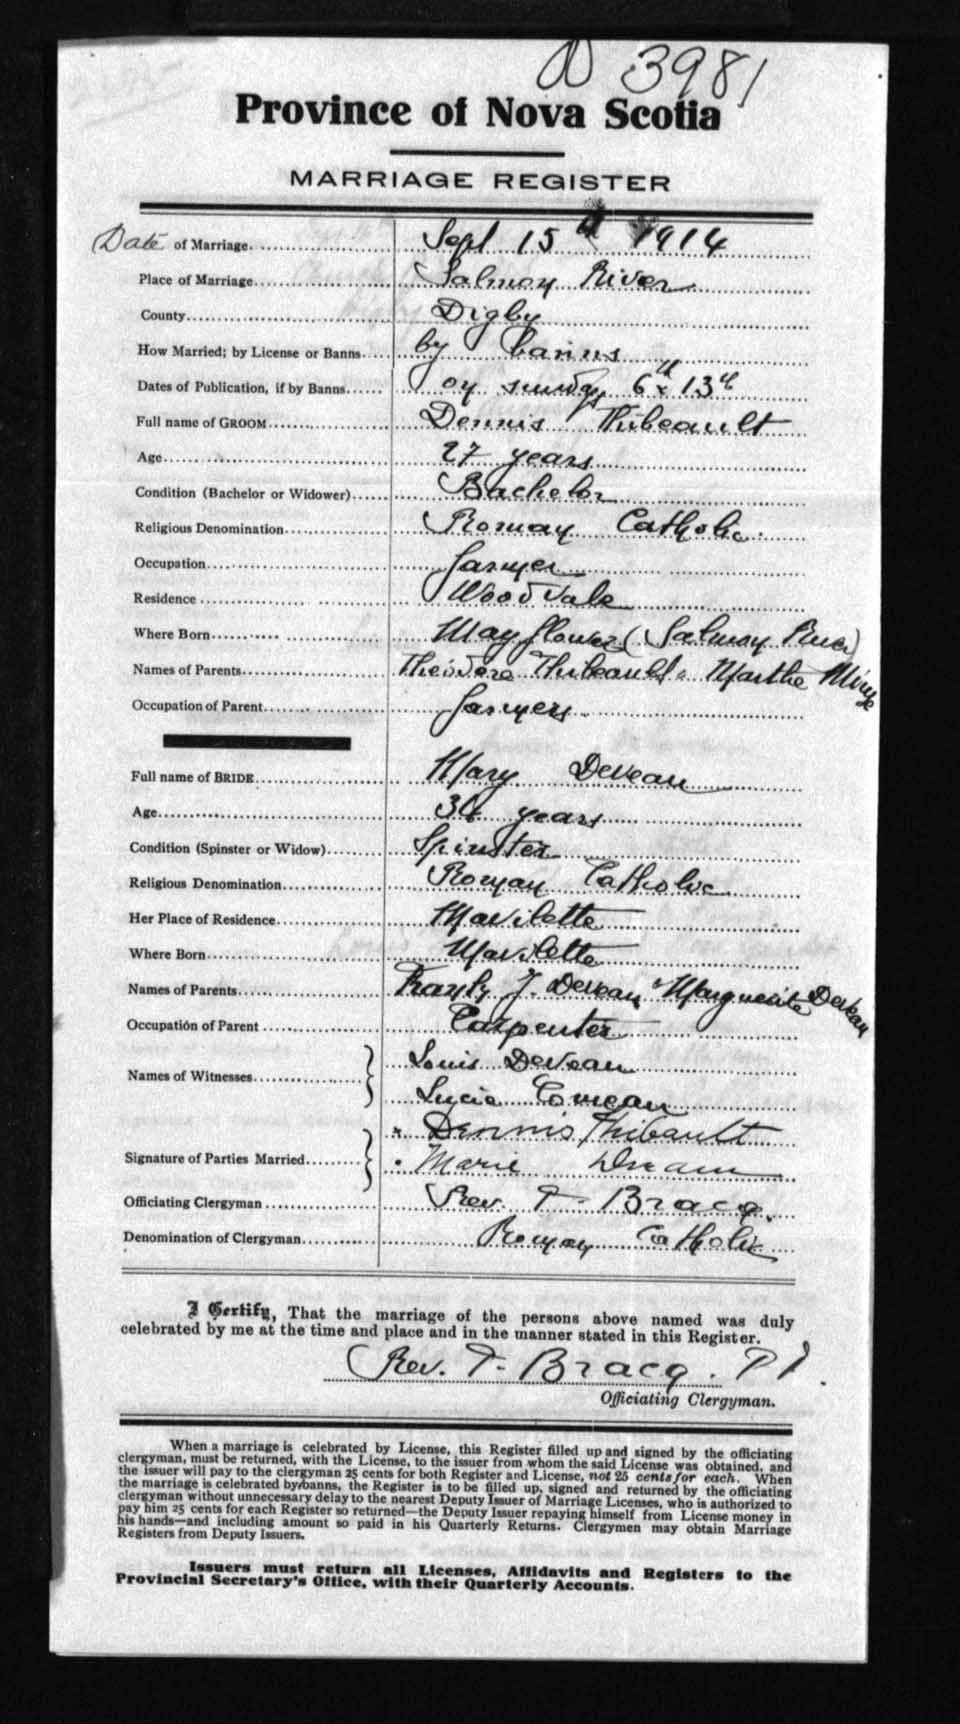 3981
Province of Nova Scotia
MARRIAGE REGISTER
Date of Marriage Sept 15th 1914
Place of Marriage Salmon River
County Digby
How Married; by License or Banns by banns
Dates of Publication, if by Banns on 6th & 13th
Full name of GROOM Dennis Thibeault
Age 27 years
Condition (Bachelor or Widower) Bachelor
Religious Denomination Roman Catholic
Occupation farmer
Residence Woodvale
Where Born Mayflower (Salmon River)
Names of Parents Theodore Thibeault & Marthe
Occupation of Parent farmers
Full name of BRIDE Mary Deveau
Age years
Condition (Spinster or Widow) Spinster
Religious Denomination Roman Catholic
Her Place of Residence Mavilette
Where Born Mavilette
Names of Parents Frank J. Deveau & Marguerite Deveau
Occupation of Parent Carpenter
Names of Witnesses Louis Deveau
Lucie Comeau
Signature of Parties Married x Dennis Thibault
Marie
Officiating Clergyman Rev. F. Bracq.
Denomination of Clergyman Roman Catholic
I Certify, That the marriage of the persons above named was duly
celebrated by me at the time and place and in the manner stated in this Register.
Rev. F. Bracq. P.
Officiating Clergyman.
When a marriage is celebrated by License, this Register filled up and signed by the officiating
clergyman, must be returned, with the License, to the issuer from whom the said License was obtained, and
the issuer will pay to the clergyman 25 cents for both Register and License, not 25 cents for each. When
the marriage is celebrated by banns, the Register is to be filled up, signed and returned by the officiating
clergyman without unnecessary delay to the nearest Deputy Issuer of Marriage Licenses, who is authorized to
pay him 25 cents for each Register so returned—the Deputy Issuer repaying himself from License money in
his hands—and including amount so paid in his Quarterly Returns. Clergymen may obtain Marriage
Registers from Deputy Issuers.
Issuers must return all Licenses, Affidavits and Registers to the
Provincial Secretary's Office, with their Quarterly Accounts.